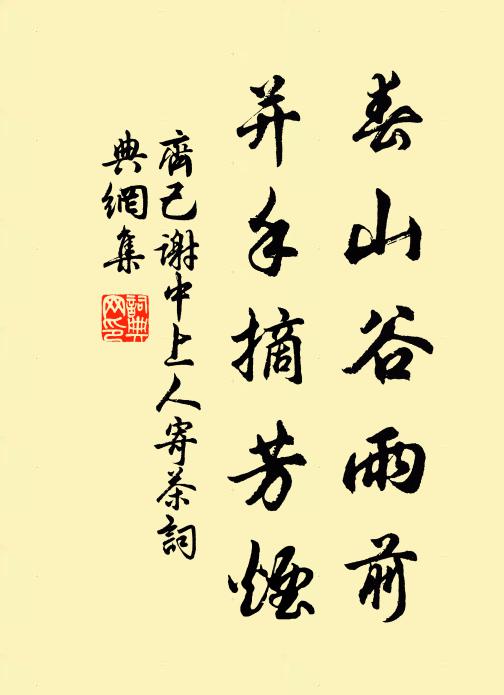 春山谷雨前
并手摘芳煙
齊己謝中上人寄茶詞
典網集
詞典網印